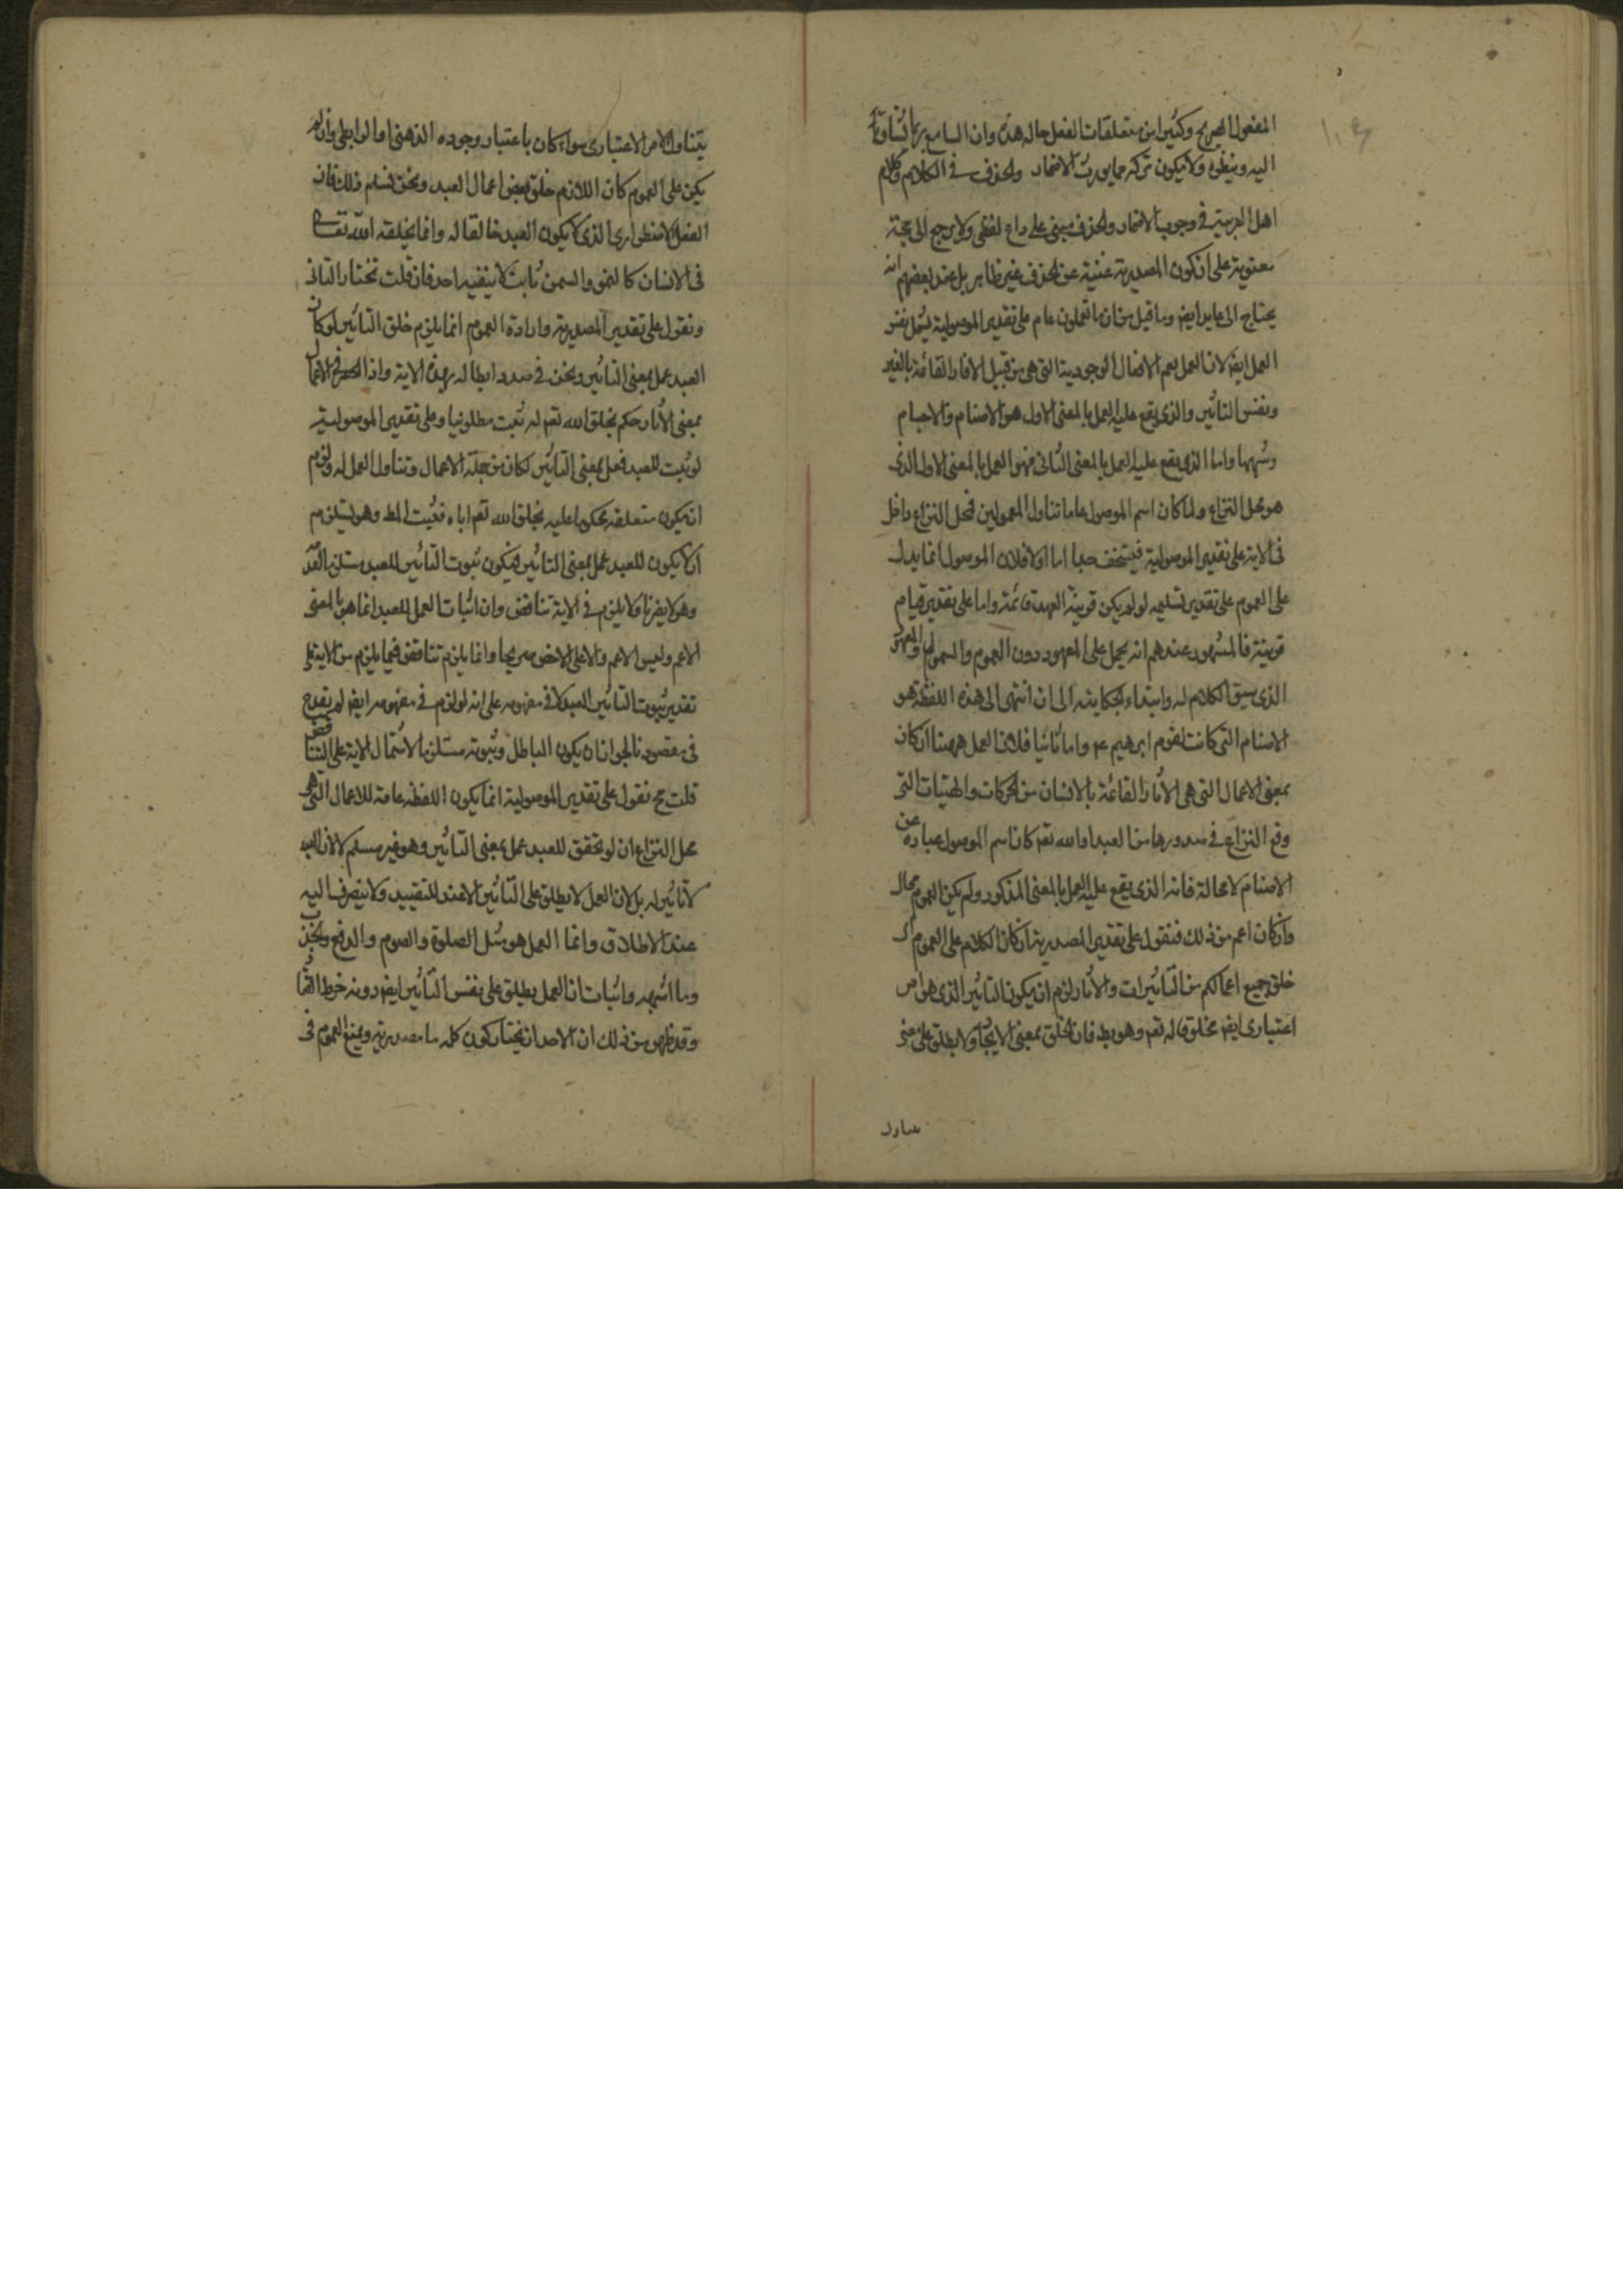 المفعول الصريح وكثير من متعلقات الفعل حاله هذه وان السامع ربما
اليه وينظره ولا يكون تركه مما يورث الاضمار والحذف في الكلام وكلام
اهل العربية في وجوب الاضمار والحذف مبنى على داع لفظى ولا يرجع الى جهة
معنوية على ان كون المصدرية غنية عن الحذف غير ظاهر بل عند بعضهم انه
يحتاج الى عايد ايضا وما قيل من ان ما تعملون عام على تقدير الموصولية يشمل نفس
العمل ايضا لان العمل يعم الافعال الوجودية التى هى من قبيل الاثار القائمة بالغير
ونفس التاثير والذى يقع عليه العمل بالمعنى الاول هو الاصنام والاجسام
وشبهها واما الذى يقع عليه العمل بالمعنى الثانى فهو العمل بالمعنى الاول الذى
هو محل النزاع ولما كان اسم الموصول عاما تناول المعمولين فمحل النزاع داخل
فى الاية على تقدير الموصولية فسخف جدا اما اولا فلان الموصول انما يدل
على العموم على تقدير تسليمه لو لم يكن قرينة العهد قائمة واما على تقدير قيام
قرينة فالمشهور عندهم انه يحمل على المعهود دون العموم والشمول والمعهود
الذى سيق الكلام له وابتداء الحكاية الى ان انتهى الى هذه اللفظة هو
الاصنام التى كانت لقوم ابرهيم ع واما ثانيا فلان العمل ههنا ان كان
بمعنى الاعمال التى هى الاثار القائمة بالانسان من الحركات والهيئات التى
وقع النزاع فى صدورها من العبد او الله تعم كان اسم الموصول عبارة عن
الاصنام لا محالة فانه الذى يقع عليه العمل بالمعنى المذكور ولم يكن للعموم مجال
وان كان اعم من ذلك فنقول على تقدير المصدرية ان كان الكلام على العموم اى
خلق جميع اعمالكم من التاثيرات والاثار لزم ان يكون التاثير الذى هو امر
اعتبارى ايضا مخلوقا له تعم وهو بط فان الخلق بمعنى الايجاد ولا يطلق على معنى
يتناول
يتناول الامر الاعتبارى سواء كان باعتبار وجوده الذهنى او الرابطى وان لم
يكن على العموم كان اللازم خلق بعض اعمال العبد ونحن نسلم ذلك فان
الفعل الاضطرارى الذى لا يكون العبد خالقا له وانما يخلقه الله تعالى
فى الانسان كالنمو والسمن ثابت لا ينفيه احد فان قلت نختار الثانى
ونقول على تقدير المصدرية وارادة العموم انما يلزم خلق التاثير لو كان
العبد عمل بمعنى التاثير ونحن فى صدد ابطاله بهذه الاية واذا انحصر الاعمال
بمعنى الاثار حكم بخلق الله تعم له ثبت مطلوبنا وعلى تقدير الموصولية
لو ثبت للعبد فعل بمعنى التاثير لكان من جملة الاعمال وتناول العمل له ولزم
ان يكون متعلقه محكوما عليه بخلق الله تعم اياه فثبت المط وهو يستلزم
ان لا يكون للعبد عمل بمعنى التاثير فيكون ثبوت التاثير للعبد مستلزم
وهو لا يضرنا ولا يلزم فى الاية تناقض وان اثبات العمل للعبد انما هو بالمعنى
الاعم وليس الاعم والا على الاخص صريحا وانما يلزم تناقض فيما يلزم من الاية على
تقدير ثبوت التاثير للعبد لا فى مفهومه على انه لو لزم فى مفهومه ايضا لم يقدح
فى مقصودنا لجواز ان يكون الباطل وثبوته مستلزما لاشتمال الاية على التناقض
قلت ح نقول على تقدير الموصولية انما يكون اللفظة عامة للاعمال التى هى
محل النزاع ان لو تحقق للعبد عمل بمعنى التاثير وهو غير مسلم لا لان العبد
لا تاثير له بل لان العمل لا يطلق على التاثير الا عند التقييد ولا ينصرف اليه
عند الاطلاق وانما العمل هو مثل الصلوة والصوم والدفع والجذب
وما اشبهه واثبات ان العمل يطلق على نفس التاثير ايضا دونه خرط القتاد
وقد ظهر من ذلك ان الاصل ان يختار كون كلمة ما مصدرية ويمنع العموم فى